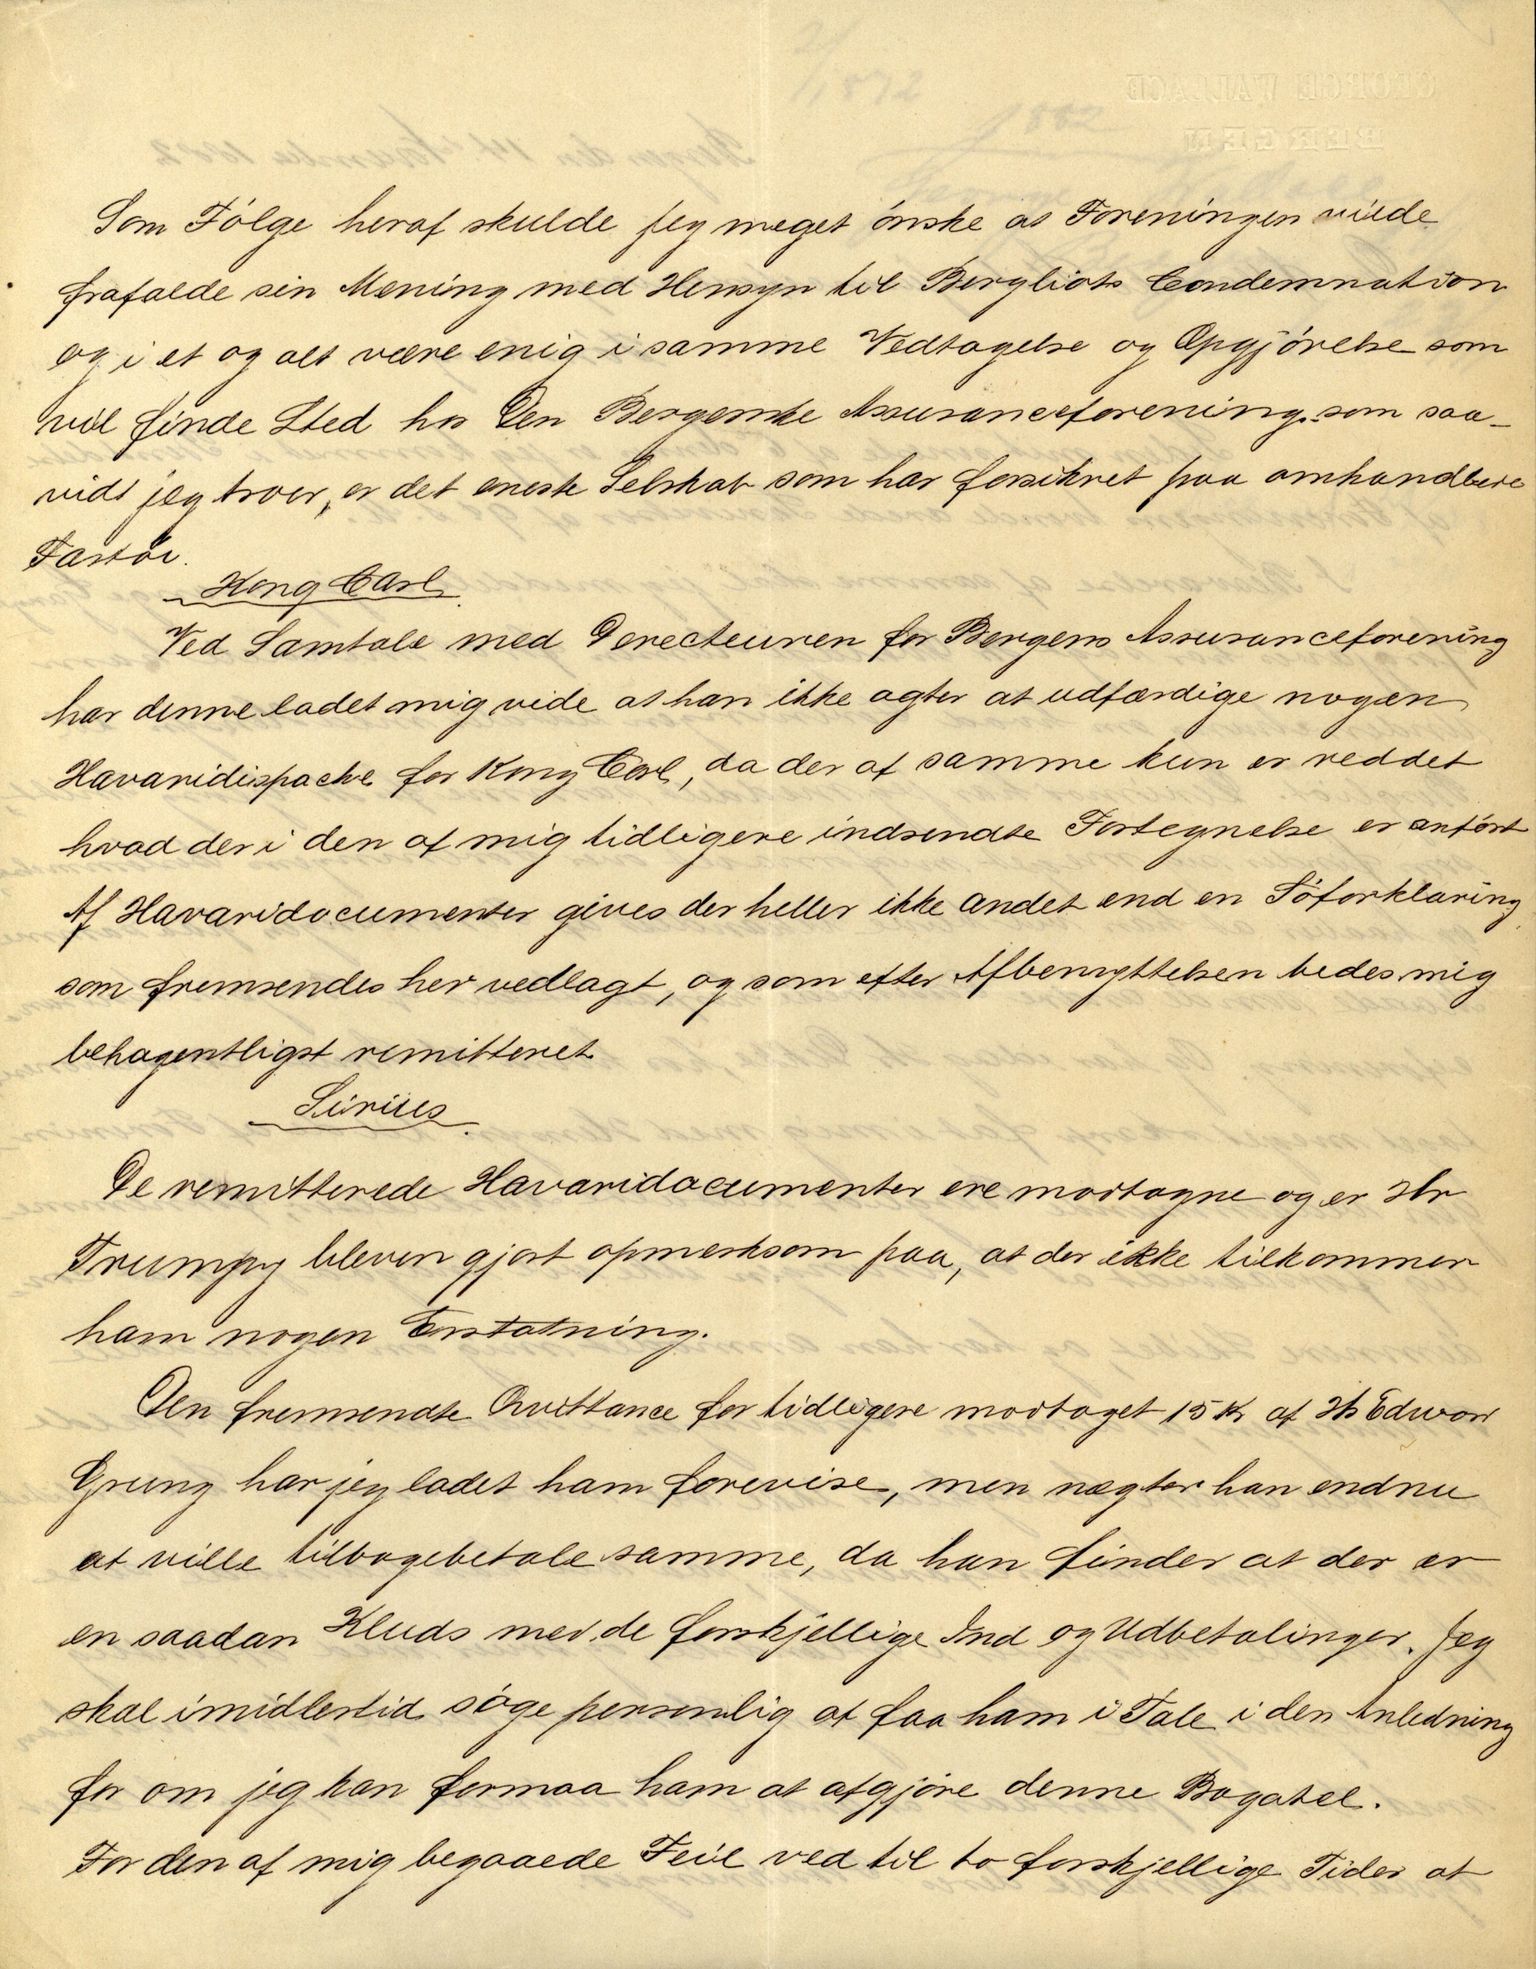 Som Følge heraf skulde jeg meget ønske at Foreningen vilde
frafalde sin Mening med Hensyn til Bergliots Condemnation
og i et og alt være enig i samme Vedtagelse og Opgjørelse som
vil finde Sted hos Den Bergenske Assuranceforening som saa-
vidt jeg troer, er det eneste Selskab som har forsikret paa omhandlede
Fartøi.
Kong Carl.
Ved Samtale med Derecteuren for Bergens Assuranceforening
har denne ladet mig vide at han ikke agter at udfærdige nogen
Havaridispache for Kong Carl, da der af samme kun er reddet
hvad der i den af mig tidligere indsendte Fortegnelse er anført
Af Havaridocumenter gives der heller ikke andet end en Søforklaring
som fremsendes her vedlagt, og som efter Afbenyttelsen bedes mig
behagentligst remitteret.
Sirius.
De remitterede Havaridocumenter ere modtagne og er Hr
Trumpy bleven gjort opmerksom paa, at der ikke tilkommer
ham nogen Erstatning.
Den fremsendte Qvittance for tidligere modtaget 15 Kr af Hr Edvard
Grung har jeg ladet ham forevise, men nægter han endnu
at ville tilbagebetale samme, da han finder at der er
en saadan Kluds med de forskjellige Ind og Udbetalinger. Jeg
skal imidlertid søge personlig at faa ham i Tale i den Anledning
for om jeg kan formaa ham at afgjøre denne Bagatel.
For den af mig begaaede Feil ved til to forskjellige Tider at